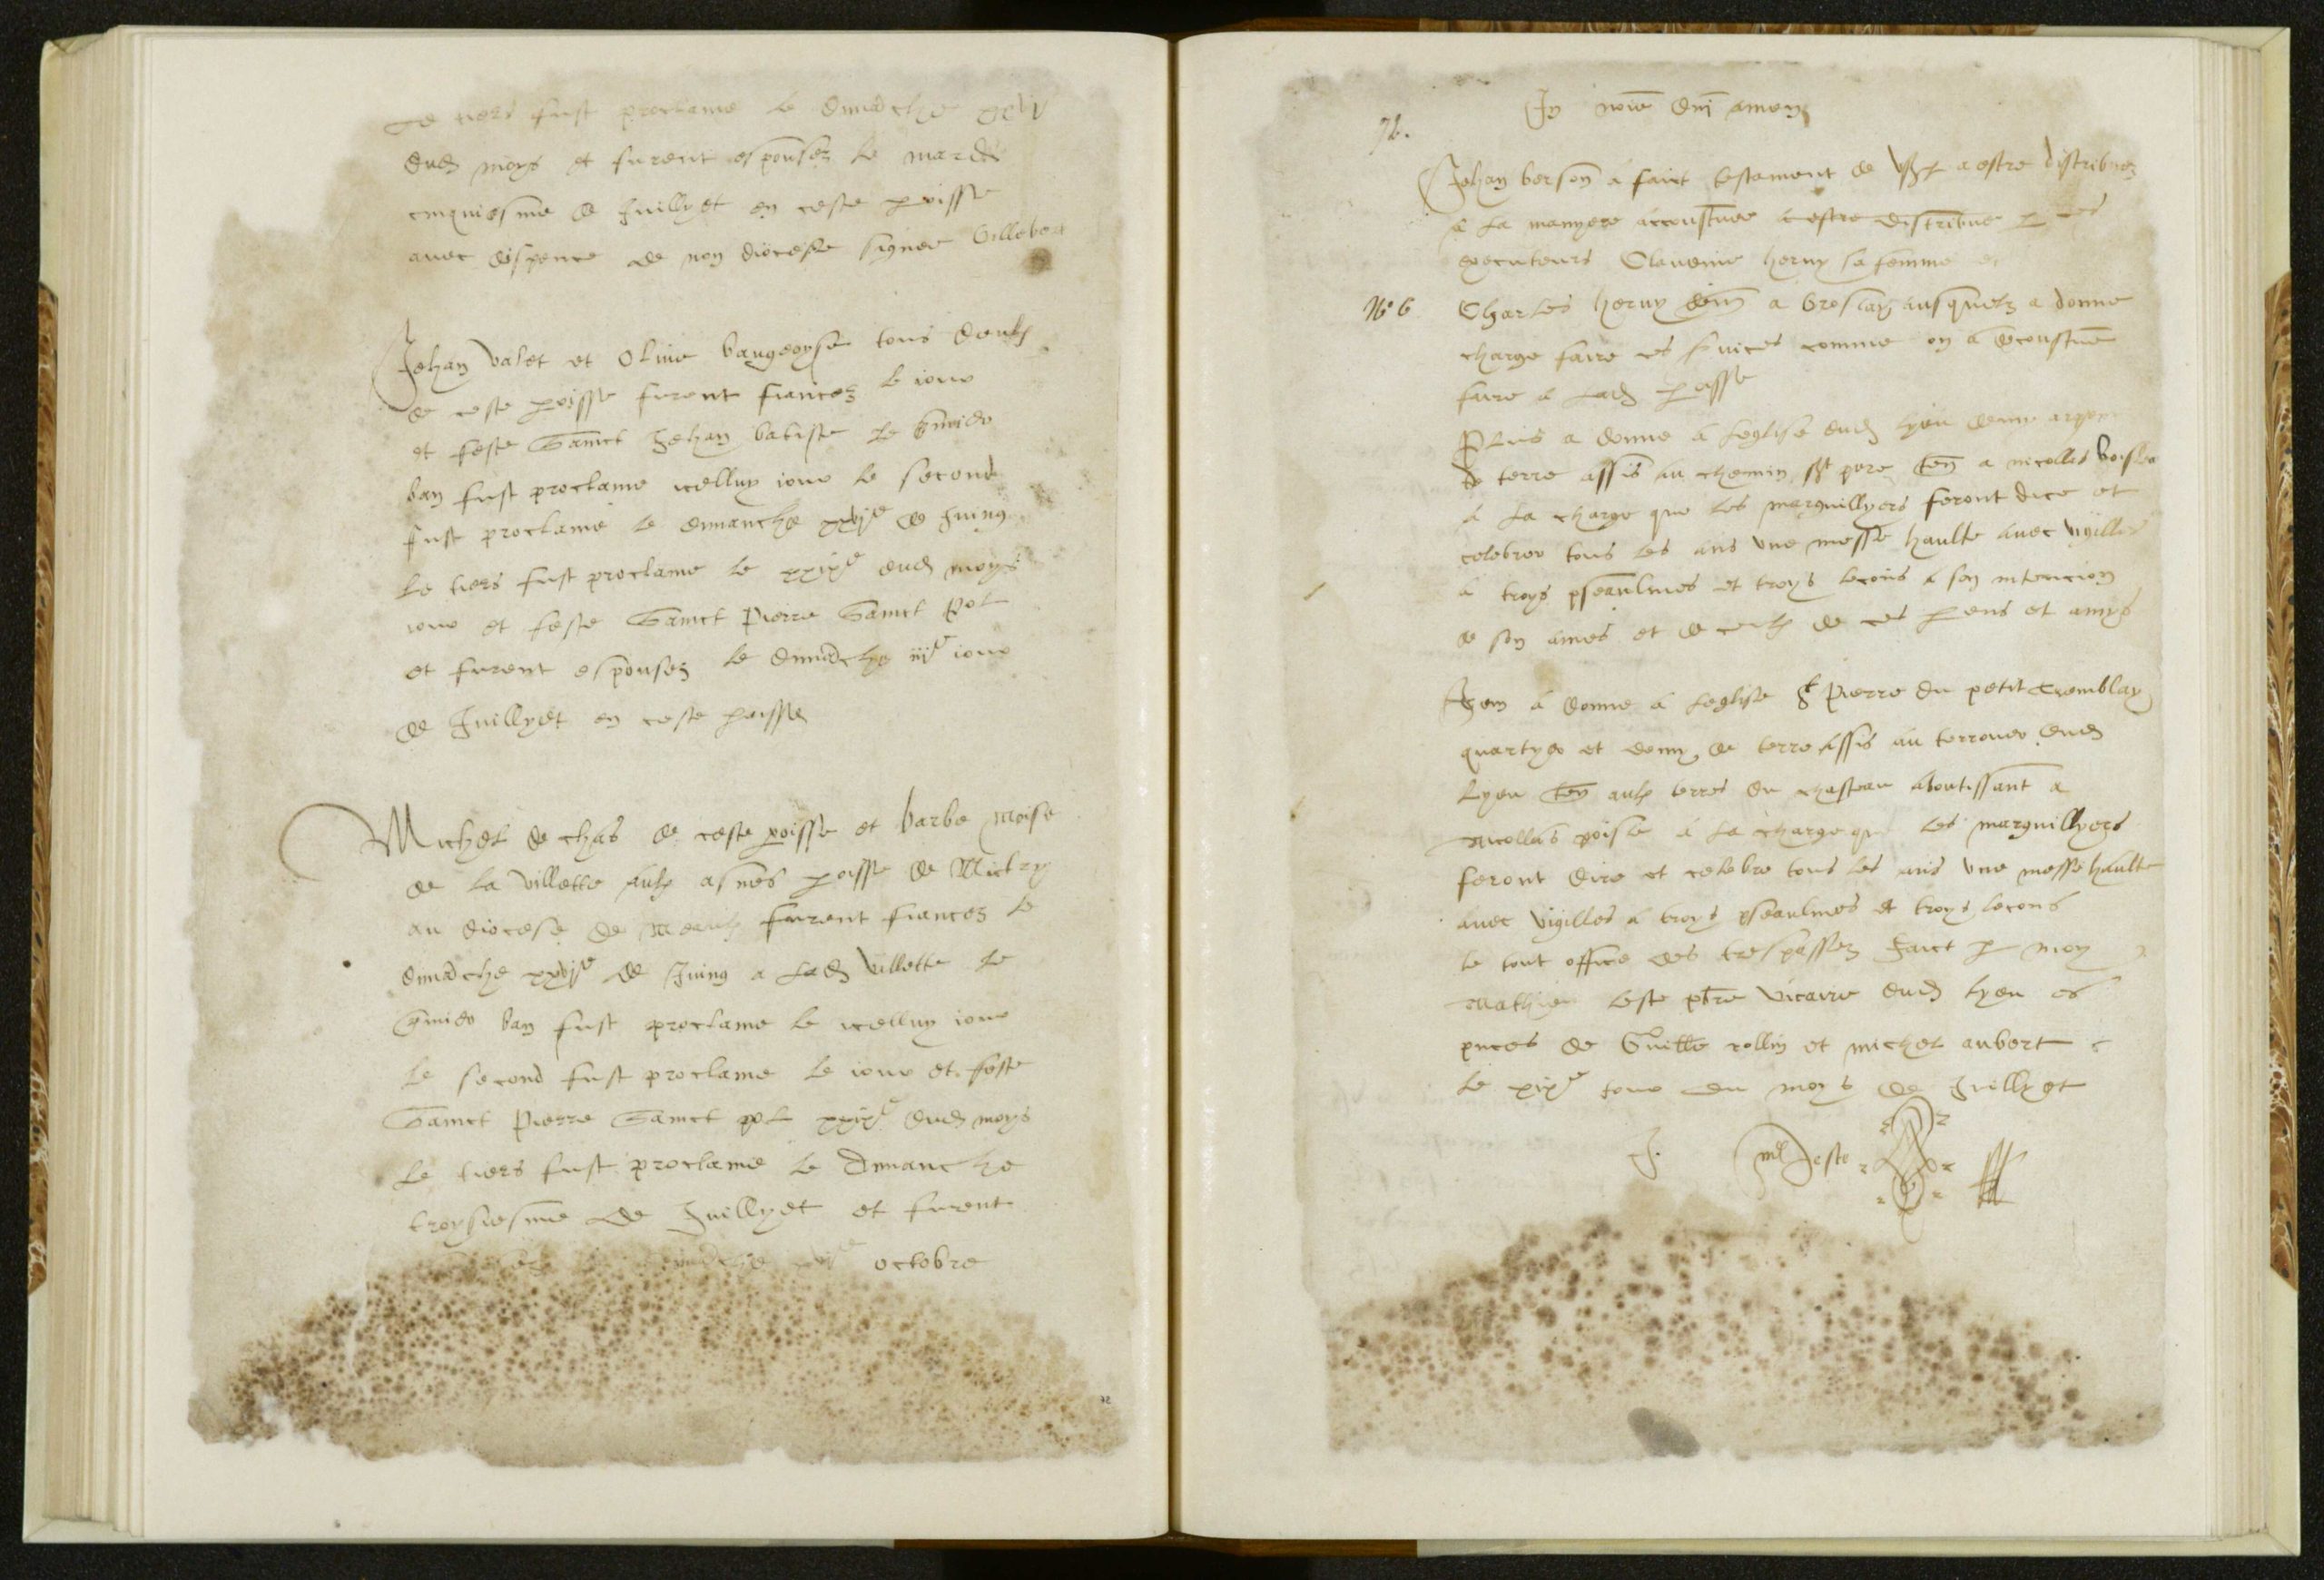 Le tiers fust proclame le dimãche xxvj
dud moys et furent espousez le mardi
cinquiesme de Juillyet en ceste poisse
avec dispence de non diocese signee Gillebert
Jehan Valet et Olive baugeoyse tous deulx
de ceste poisse furent fiancez le iour
et feste Sainct Jehan batiste le p̃mier
ban fust proclame icelluy iour le second
fust proclame le dimanche xxvje de Juing
le tiers fust proclame le xxixe dud moys
iour et feste Sainct Pierre Sainct Pol
et furent espousez le dimãche iije iour
de Juillyet en ceste poisse
Michel de chãs de ceste poisse et barbe Moise
de la villette aulx asnes poisse de Mictry
au diocese de Meaulx furent fiancez le
dimãche xxvje de Juing a lad villette le
p̃mier ban fust proclame le icelluy iour
le second fust proclame le iour et feste
Sainct Pierre Sainct pol xxixe dud moys
le tiers fust proclame le dimanche
troysiesme de Juillyet et furent
dimãche octobre
72
72.
In noiẽ dñi amen
Jehan berson a faict testament de a estre distribuez
a la manyere accoustumee a estre distribue p ses
executeurs Claudine heruy sa femme et
No 6
Charles heruy dem̃ a Groslay ausquelz a donne
charge faire ces s̃vices comme on a acoustume
faire a lad poisse
Plus a donne a leglise dud lyeu demy arpen
de terre assis au chemin st pere ten a nicollas boisle
a la charge que les marguillyers feront dire et
celebrer tous les ans une messe haulte avec vigilles
a troys pseaulmes et troys lecons a son intencion
de son ames et de ceulx de ces pens et amys
Item a donne a leglise St Pierre du petit tremblay
quartyer et demy de terre assis au terrouer dud
lyeu ten aulx terres du chasteau aboutissant a
nicollas boisle a la charge que les marguillyers
feront dire et celebre tous les ans une messe haulte
avec vigilles a troys pseaulmes et troys lecons
le tout office des trespassez faict p moy
Mathieu leste pbre vicaire dud lyeu es
pñces de Guille rollin et michel aubert
le xixe iour du moys de Juillyet
M leste